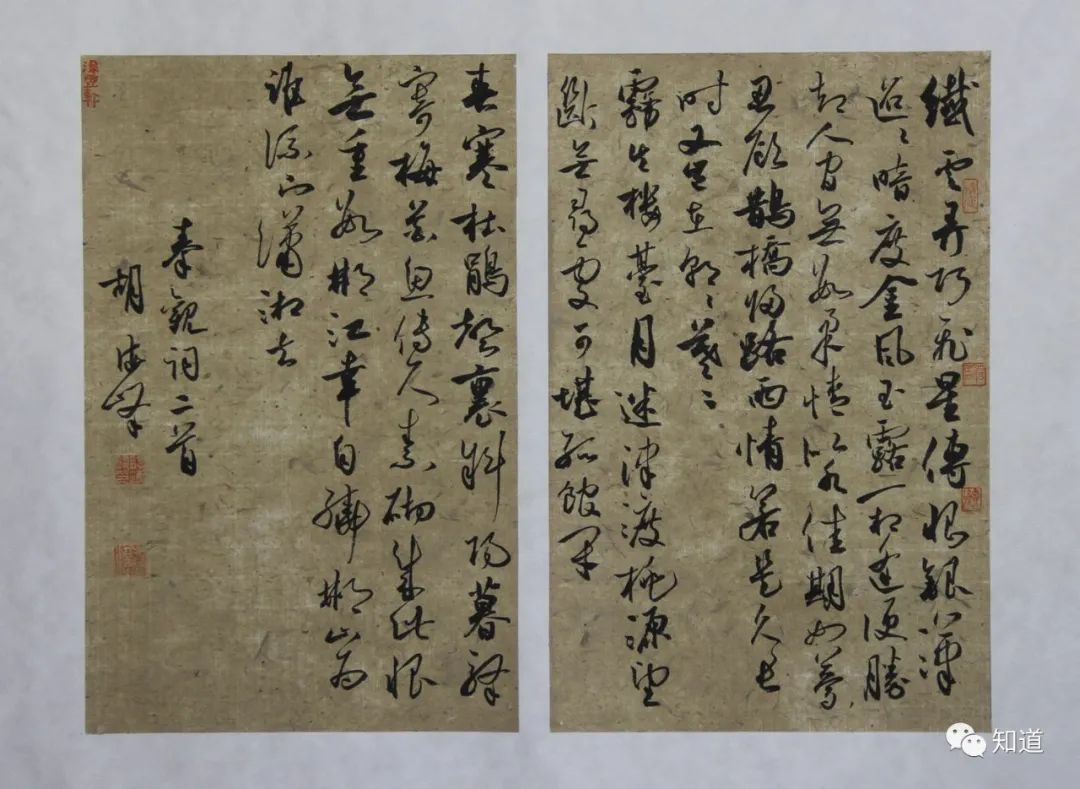 纖云弄巧飛星傳恨銀漢
迢〻暗度金風玉露一相逢便勝
却人间無數柔情似水佳期如夢
忍顧鵲橋歸路兩情若是久長
時又豈在朝〻暮〻
霧失樓臺月迷津渡桃源望
斷無尋處可堪孤館閉
春寒杜鵑聲裏斜陽暮驛
寄梅花魚傳尺素砌成此恨
無重數郴江幸自繞郴山為
誰流下瀟湘去
秦觀詞二首
胡
知道